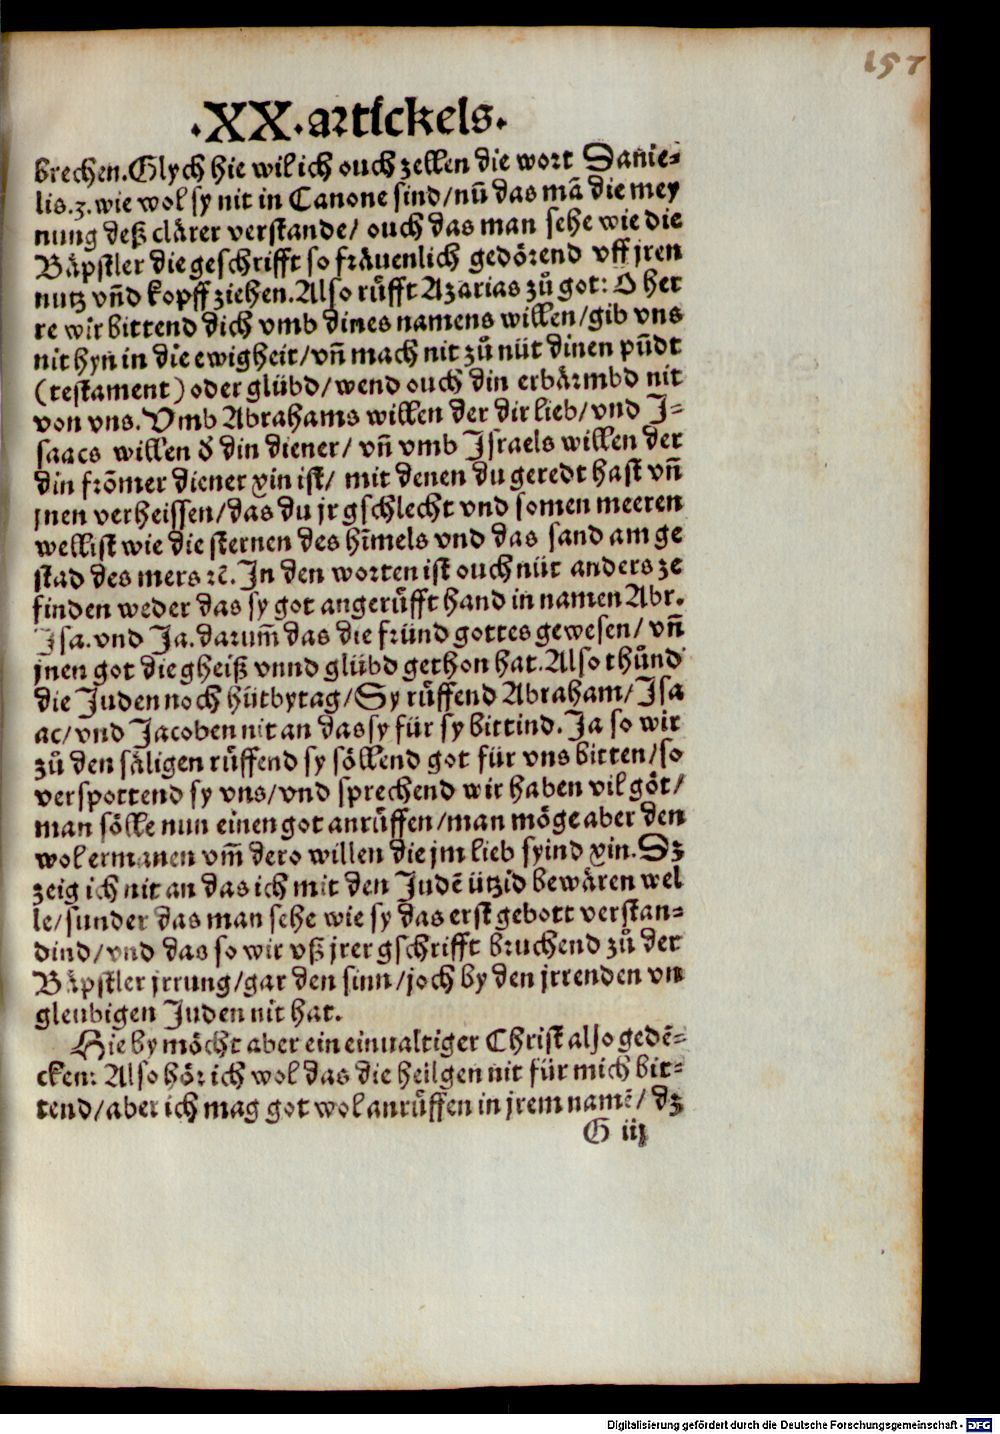 157
.XX.artickels.
brechen.Glych hie wil ich ouch zellen die wort Danie-
lis.3.wie wol sy nit in Canone sind/nū das mā die mey
nung deß clärer verstande/ ouch das man sehe wie die
Bäpstler die geschrifft so fräuenlich gedörend vff jren
nutz vn̄d kopff ziehen.Also rüfft Azarias zů got: O her
re wir bittend dich vmb dines namens willen/gib vns
nit hyn in die ewigheit/vn̄ mach nit zů nüt dinen pūdt
(testament) oder glübd/wend ouch din erbärmbd nit
von vns. Vmb Abrahams willen der dir lieb/vnd J-
saacs willen d̄ din diener/ vn̄ vmb Jsraels willen der
din frōmer diener xin ist/ mit denen du geredt hast vn̄
jnen verheissen/das du jr gschlecht vnd somen meeren
wellist wie die sternen des hīmels vnd das sand am ge
stad des mers ꝛc̄. Jn den worten ist ouch nüt anders ze
finden weder das sy got angerüfft hand in namen Abr.
Jsa.vnd Ja.darum̄ das die fründ gottes gewesen/ vn̄
jnen got die gheiß vnnd glübd gethon hat.Also thůnd
die Juden noch hütbytag/Sy rüffend Abraham/Jsa
ac/vnd Jacoben nit an das sy für sy bittind. Ja so wir
zů den säligen rüffend sy söllend got für vns bitten/so
verspottend sy vns/vnd sprechend wir haben vil göt/
man sölle nun einen got anrüffen/man möge aber den
wol ermanen vm̄ dero willen die jm lieb syind xin.Dz
zeig ich nit an das ich mit den Judē ützid bewären wel
le/sunder das man sehe wie sy das erst gebott verstan-
dind/vnd das so wir vß jrer gschrifft bruchend zů der
Bäpstler jrrung/gar den sinn/joch by den jrrenden vn
gleubigen Juden nit hat.
Hie by möcht aber ein einualtiger Christ also gedē-
cken: Also hör ich wol das die heilgen nit für mich bit-
tend/aber ich mag got wol anrüffen in jrem namē/ dz
G iij
Digitalisierung gefördert durch die Deutsche Forschungsgemeinschaft - DFG